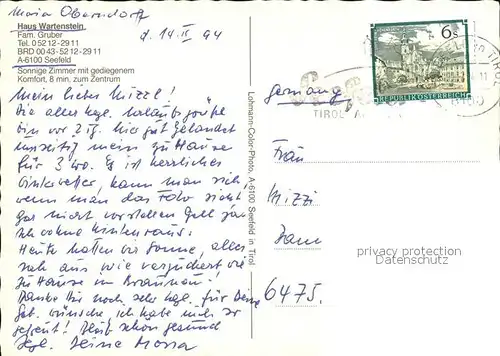 Maria Oberndorff
d. 14. II 94
Haus Wartenstein
Fam. Gruber
Tel. 0 52 12-29 11
BRD 00 43-52 12-29 11
A-6100 Seefeld
Sonnige Zimmer mit gediegenem
Komfort, 8 min. zum Zentrum
Mein lieber Mizzi!
Dir alle hgl. Urlaubsgrüße
bin vor 2 Tg. hier gut gelandet
mein zu Hause
für 3 Wo. Es ist herrliches
Winterwetter, kann man sich
wenn man das Foto sieht
gar nicht vorstellen Gell ja
ich ohne Winter raus!
Heute hatten wir Sonne, alles
sah aus wie verzuckert wie
zu Hause in Braunau!
Danke Dir noch sehr hgl. für Deine
Geb. wünsche, ich habe mich sehr
gefreut! Bleib schön gesund
Deine Maria
Lohmann-Color-Photo, A-6100 Seefeld in Tirol
Germany
TIROL
6s
REPUBLIK ÖSTERREICH
TIROL
6100
Frau
Mizzi
6475.
privacy protection
Datenschutz